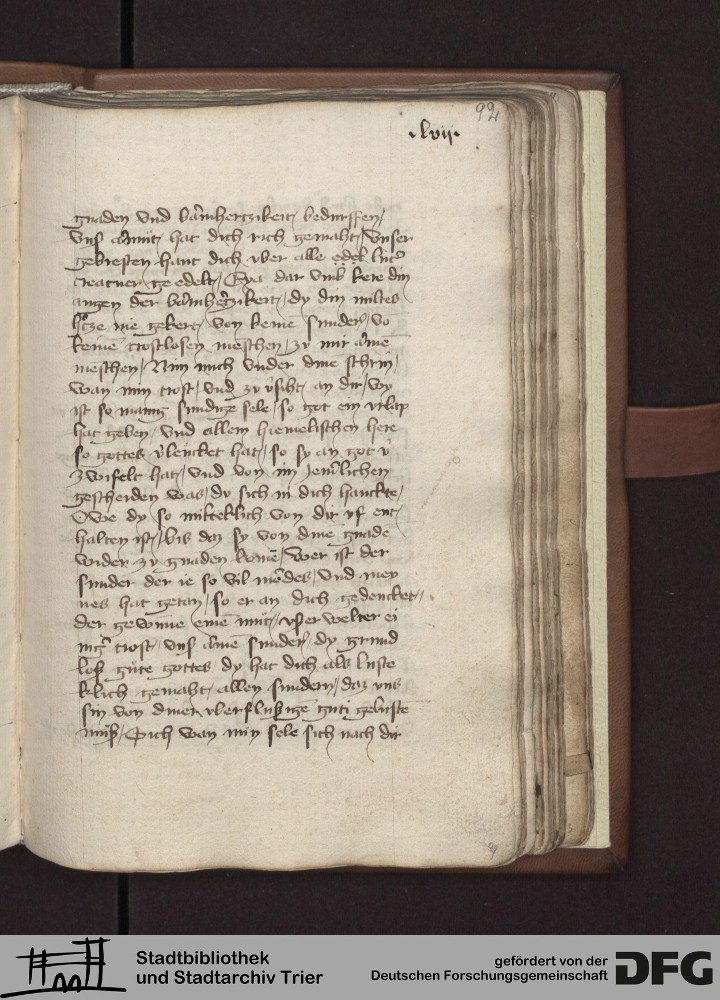 92
.lvij.
gnaden vnd barmhertzikeit bedurffen /
vnser armut hat dich rich gemaht / vnser
gebresten hant dich vber alle edel luter
creatuer ge edelt / Eya dar vmb kere din
augen der barmhertzikeit / dy din miltes
hertze nie gekert / von keinē sunder / vo
keinē trostlosen meschen / zu mir armē
meschen / Nim mich vnder dine schrin /
wan min trost / vnd zu vsiht an dir / wy
ist so manig sundige sele / so got ein vrlap
hat geben / vnd allem hiemelischen here
so gottes verleucket hat / so sy an got v
zwifelt hat / vnd von im Jemerlichen
gescheiden was / du sich in dich hanckte /
Owe dy so mitteklich von dir vf ent
halten ist / bis daz sy von dine gnade
wider zu gnaden kome / wer ist der
sunder der ie so vil mordes / vnd mey
nes hat getan / so er an dich gedencket /
der gewinne einē mut / vser welter ei
niger trost / vns armē sunder / dy grund
loß güte gottes / dy hat dich als luste
klich gemaht / allen sundern / daz vns
sin von diner vberflußigē guti geluste
muß / Sich wan min sele sich nach dir
Stadtbibliothek
und Stadtarchiv Trier
gefördert von der
Deutschen Forschungsgemeinschaft
DFG